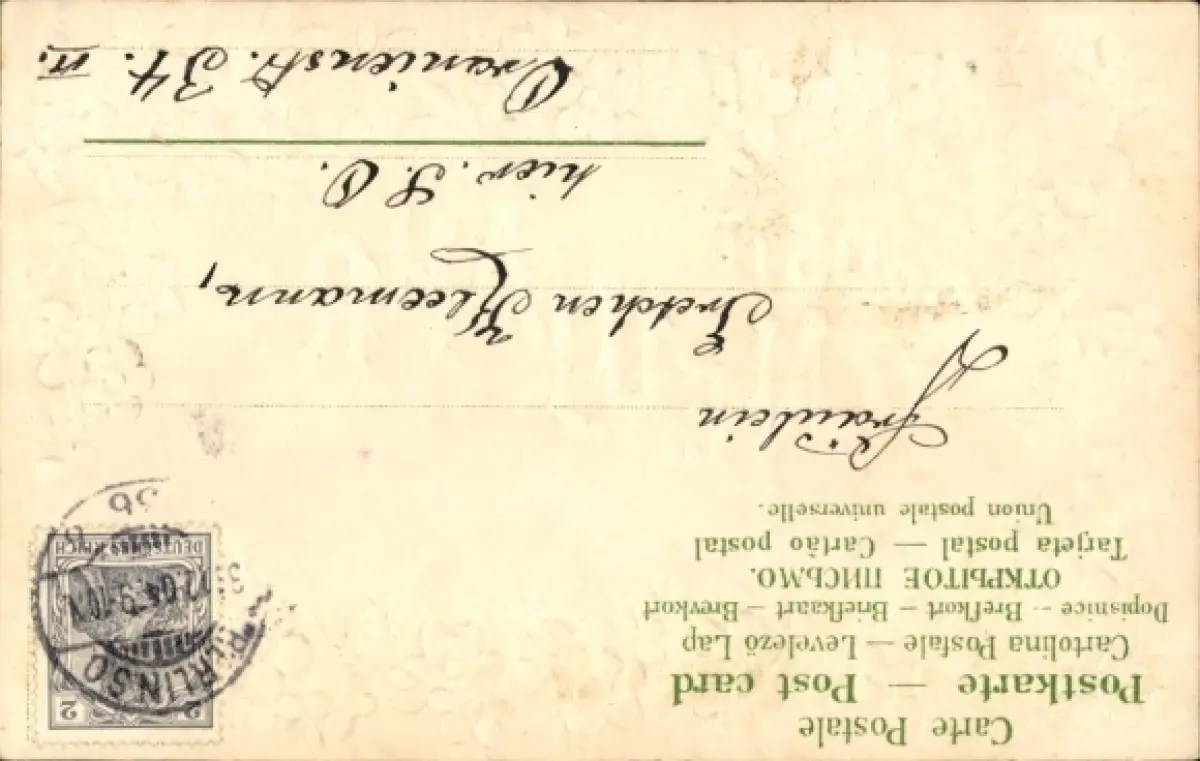 Carte Postale
Postkarte — Post card
Cartolina Postale — Levelező Lap
Dopisnice — Brefkort — Briefkaart — Brevkort
ОТКРЫТОЕ ПИСЬМО.
Tarjeta postal — Cartão postal
Union postale universelle.
2 2
DEUTSCHES REICH
BERLIN SO
36
Fräulein
Gretchen Kleemann,
hier. S. O.
Oranienstr. 34. II.